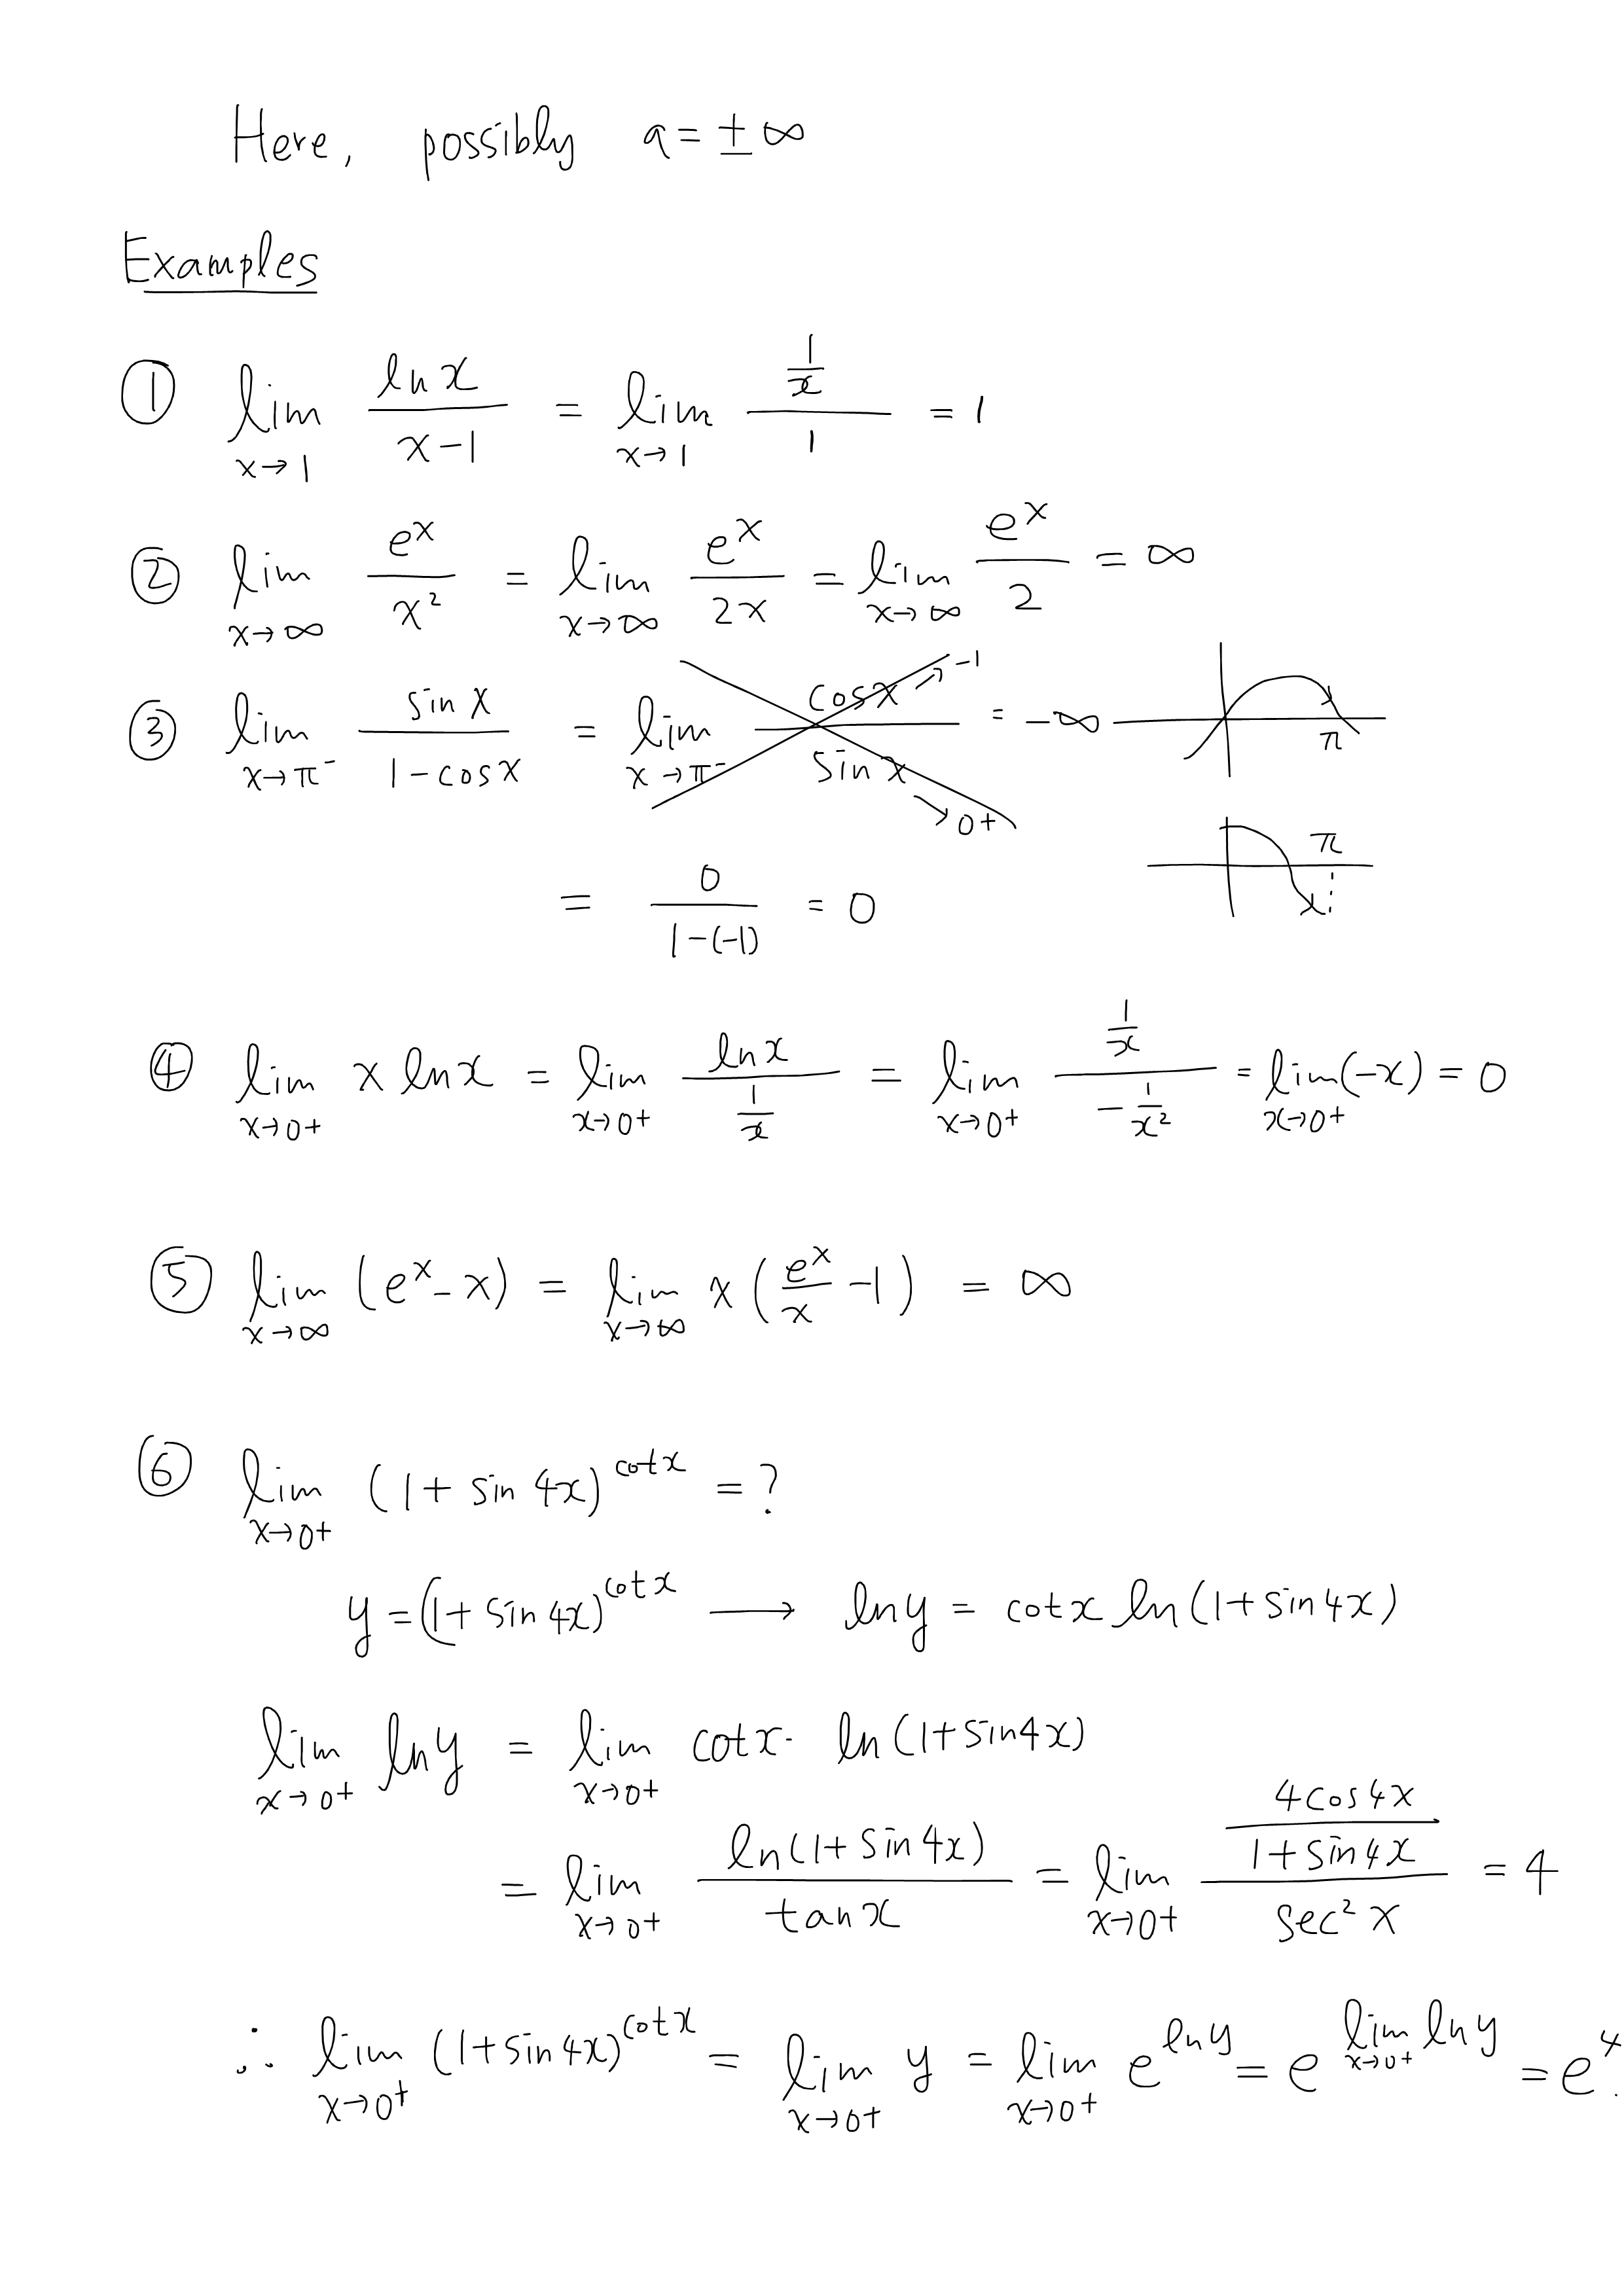 Here, possibly a = ± ∞
Examples
① lim_{x→1} \frac{ln x}{x-1} = lim_{x→1} \frac{\frac{1}{x}}{1} = 1
② lim_{x→∞} \frac{e^x}{x^2} = lim_{x→∞} \frac{e^x}{2x} = lim_{x→∞} \frac{e^x}{2} = ∞
③ lim_{x→π^-} \frac{sin x}{1-cos x} = lim_{x→π^-} \frac{cos x → -1}{sin x → 0+} = -∞ π
= \frac{0}{1-(-1)} = 0 π
④ lim_{x→0+} x ln x = lim_{x→0+} \frac{ln x}{\frac{1}{x}} = lim_{x→0+} \frac{\frac{1}{x}}{-\frac{1}{x^2}} = lim_{x→0+} (-x) = 0
⑤ lim_{x→∞} (e^x - x) = lim_{x→∞} x (\frac{e^x}{x} - 1) = ∞
⑥ lim_{x→0+} (1 + sin 4x)^{cot x} = ?
y = (1 + sin 4x)^{cot x} ⟶ ln y = cot x ln (1 + sin 4x)
lim_{x→0+} ln y = lim_{x→0+} cot x · ln (1 + sin 4x)
= lim_{x→0+} \frac{ln (1 + sin 4x)}{tan x} = lim_{x→0+} \frac{\frac{4 cos 4x}{1 + sin 4x}}{sec^2 x} = 4
∴ lim_{x→0+} (1 + sin 4x)^{cot x} = lim_{x→0+} y = lim_{x→0+} e^{ln y} = e^{lim_{x→0+} ln y} = e^4.